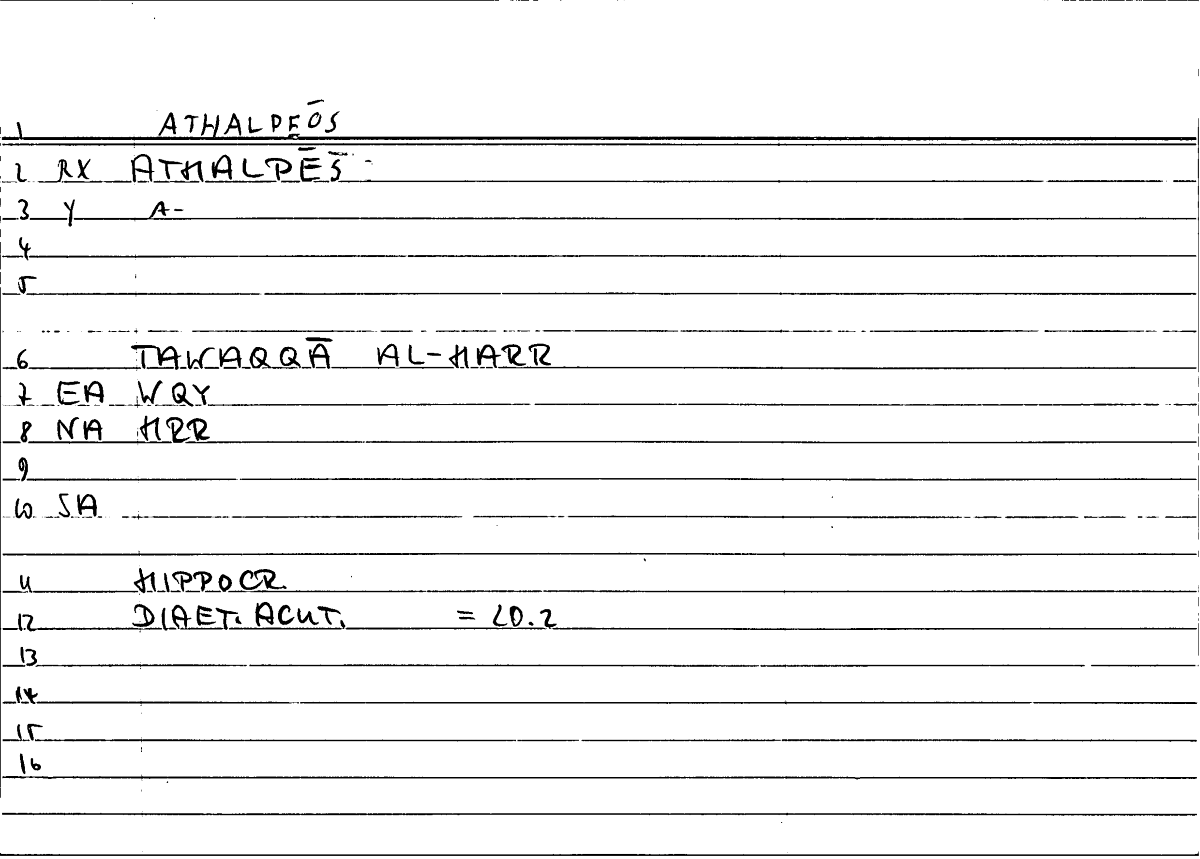 1 ATHALPEŌS
2 RX ATHALPĒS
3 Y A-
4
5
6 TAWAQQĀ AL-HARR
7 EA WQY
8 NA HRR
9
10 SA
11 HIPPOCR.
12 DIAET. ACUT. = 20.2
13
14
15
16